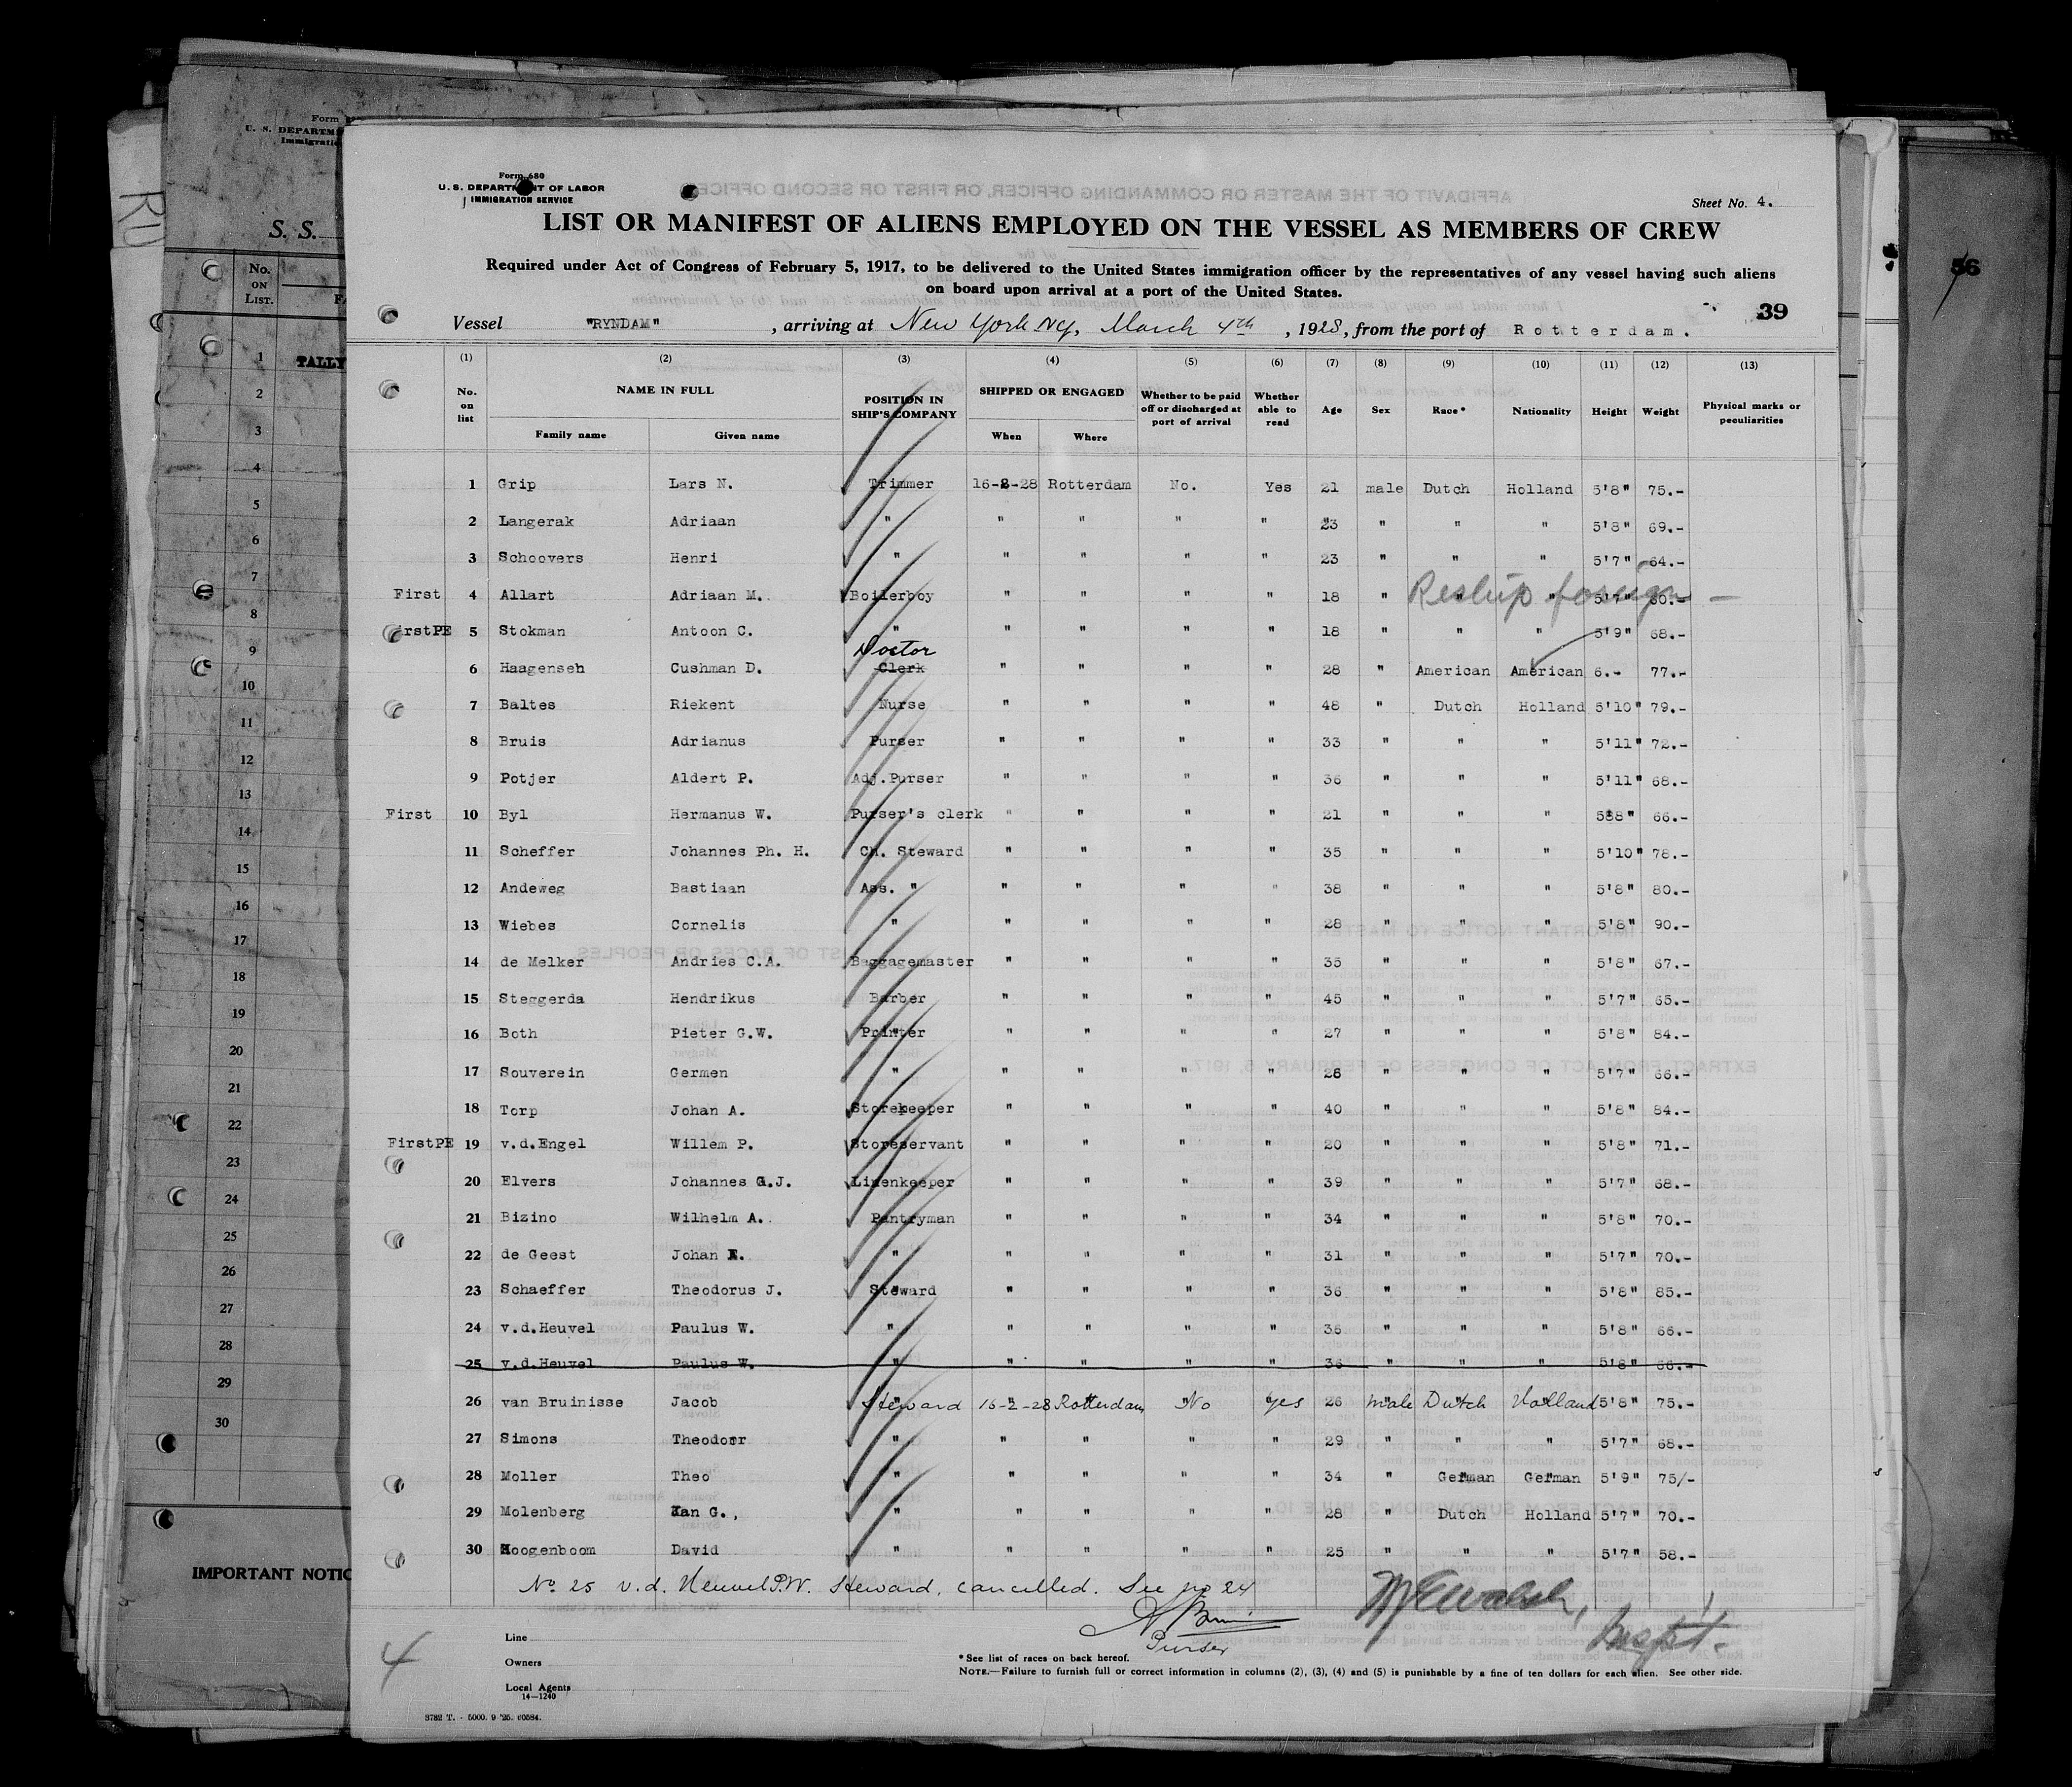 Form 680
U. S. DEPARTMENT OF LABOR
IMMIGRATION SERVICE
Sheet No. 4.
LIST OR MANIFEST OF ALIENS EMPLOYED ON THE VESSEL AS MEMBERS OF CREW
Required under Act of Congress of February 5, 1917, to be delivered to the United States immigration officer by the representatives of any vessel having such aliens
on board upon arrival at a port of the United States.
39
Vessel "RYNDAM" , arriving at New York NY, March 4th , 1928, from the port of Rotterdam.
(1) (2) (3) (4) (5) (6) (7) (8) (9) (10) (11) (12) (13)
No. on list NAME IN FULL Family name Given name POSITION IN SHIP'S COMPANY SHIPPED OR ENGAGED When Where Whether to be paid off or discharged at port of arrival Whether able to read Age Sex Race* Nationality Height Weight Physical marks or peculiarities
1 Grip Lars N. Trimmer 16-2-28 Rotterdam No. Yes 21 male Dutch Holland 5'8" 75.-
2 Langerak Adriaan " " " " " 23 " " " 5'8" 69.-
3 Schoovers Henri " " " " " 23 " " " 5'7" 64.-
First 4 Allart Adriaan M. Boilerboy " " " " 18 " Reship foreign " 5'7" 60.-
FirstPE 5 Stokman Antoon C. " " " " " 18 " " " 5'9" 68.-
Doctor
6 Haagenseh Cushman D. Clerk " " " " 28 " American American 6.- 77.-
7 Baltes Riekent Nurse " " " " 48 " Dutch Holland 5'10" 79.-
8 Bruis Adrianus Purser " " " " 33 " " " 5'11" 72.-
9 Potjer Aldert P. Adj.Purser " " " " 36 " " " 5'11" 68.-
First 10 Byl Hermanus W. Purser's clerk " " " " 21 " " " 588" 66.-
11 Scheffer Johannes Ph. H. Ch. Steward " " " " 35 " " " 5'10" 78.-
12 Andeweg Bastiaan Ass. " " " " " 38 " " " 5'8" 80.-
13 Wiebes Cornelis " " " " " 28 " " " 5'8" 90.-
14 de Melker Andries C.A. Baggagemaster " " " " 35 " " " 5'8" 67.-
15 Steggerda Hendrikus Barber " " " " 45 " " " 5'7" 65.-
16 Both Pieter G.W. Printer " " " " 27 " " " 5'8" 84.-
17 Souverein Germen " " " " " 26 " " " 5'7" 66.-
18 Torp Johan A. Storekeeper " " " " 40 " " " 5'8" 84.-
FirstPE 19 v.d.Engel Willem P. Storeservant " " " " 20 " " " 5'8" 71.-
20 Elvers Johannes G.J. Linenkeeper " " " " 39 " " " 5'7" 68.-
21 Bizino Wilhelm A. Pantryman " " " " 34 " " " 5'8" 70.-
22 de Geest Johan " " " " " 31 " " " 5'7" 70.-
23 Schaeffer Theodorus J. Steward " " " " 36 " " " 5'8" 85.-
24 v.d.Heuvel Paulus W. " " " " " 36 " " " 5'8" 66.-
25 v.d.Heuvel Paulus W. " " " " " 36 " " " 5'8" 66.-
26 van Bruinisse Jacob Steward 16-2-28 Rotterdam No Yes 26 male Dutch Holland 5'8" 75.-
27 Simons Theodorr " " " " " 29 " " " 5'7" 68.-
28 Moller Theo " " " " " 34 " German German 5'9" 75/-
29 Molenberg Jan G., " " " " " 28 " Dutch Holland 5'7" 70.-
30 Hoogenboom David " " " " " 25 " " " 5'7" 58.-
No 25 v.d. Heuvel P.W. Steward, cancelled. See no 24
Purser
Walsh, Insp't.
4
Line
Owners
Local Agents
14—1240
* See list of races on back hereof.
NOTE.—Failure to furnish full or correct information in columns (2), (3), (4) and (5) is punishable by a fine of ten dollars for each alien. See other side.
3782 T. - 5000. 9 '25. 60584.
Form
U. S. DEPARTM
Immigrati
S. S.
No. ON LIST.
TALLY
1
2
3
4
5
6
7
8
9
10
11
12
13
14
15
16
17
18
19
20
21
22
23
24
25
26
27
28
29
30
IMPORTANT NOTIC
RU
56